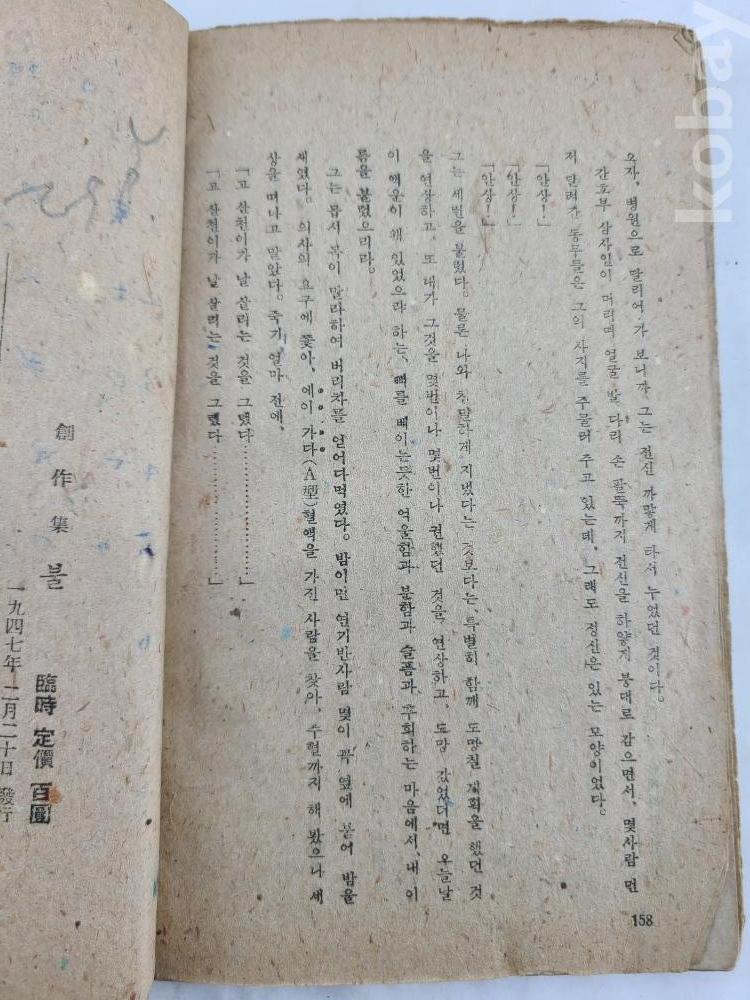 오자, 병원으로 달리어 가 보니까, 그는 전신 까맣게 타서 누었던 것이다.
간호부 삼사인이 머리며 얼굴 발 다리 손 팔뚝까지 전신을 하얗게 붕대로 감으면서, 몇사람 먼
저 달려간 동무들은 그의 사지를 주물러 주고 있는데, 그래도 정신은 있는 모양이었다.
「안상!」
「안상!」
「안상!」
그는 세번을 불렀다. 물론 나와 친밀하게 지냈다는 것보다는, 특별히 함께 도망칠 계획을 했던 것
을 연상하고, 또 내가 그것을 몇번이나 몇번이나 권했던 것을 연상하고, 도망 갔었더면 오늘날
이 액운이 왜 있었으랴 하는, 뼈를 베이는듯한 억울함과 분함과 슬픔과 후회하는 마음에서, 내 이
름을 불렀으리라.
그는 몹시 목이 말라하여 버리차를 얻어다먹였다. 밤이면 연기반사람 몇이 꼭 옆에 붙어 밤을
새였다. 의사의 요구에 쫓아, 에이 가다(A型)혈액을 가진 사람을 찾아, 수혈까지 해 봤으나 세
상을 떠나고 말았다. 죽기 얼마 전에,
「고 산천이가 날 살리는 것을 그랬다……………」
「고 산천이가 날 살려는 것을 그랬다……………」
158
創作集 불
臨時定價 百圓
一九四七年 二月二十日 發行
kobay